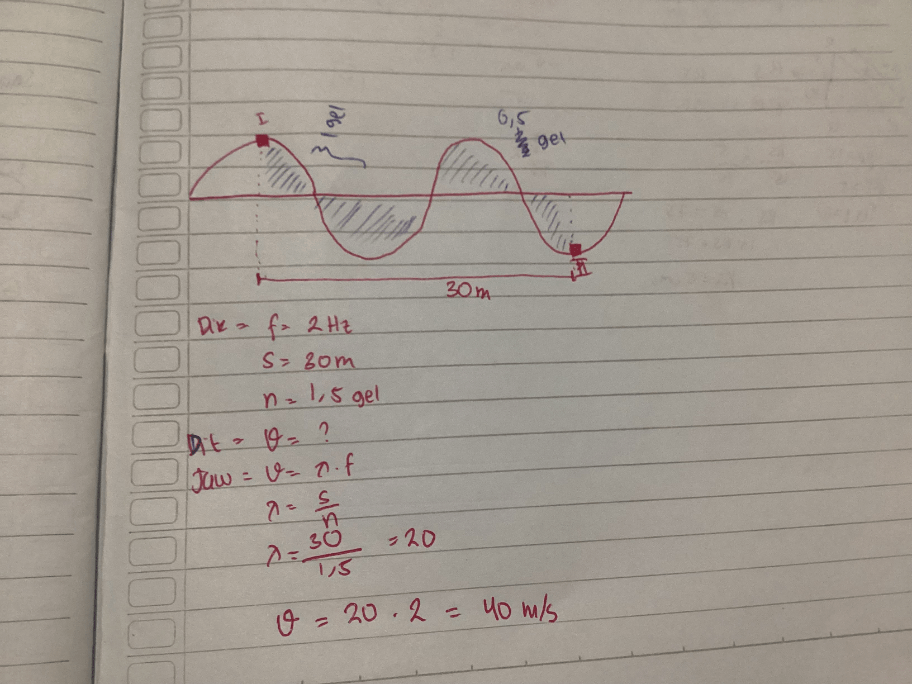 I
1 gel
0,5
gel
II
30 m
Dik = f = 2 Hz
S = 30 m
n = 1,5 gel
Dit = v = ?
Jaw = v = λ . f
λ = s/n
λ = 30/1,5 = 20
v = 20 . 2 = 40 m/s